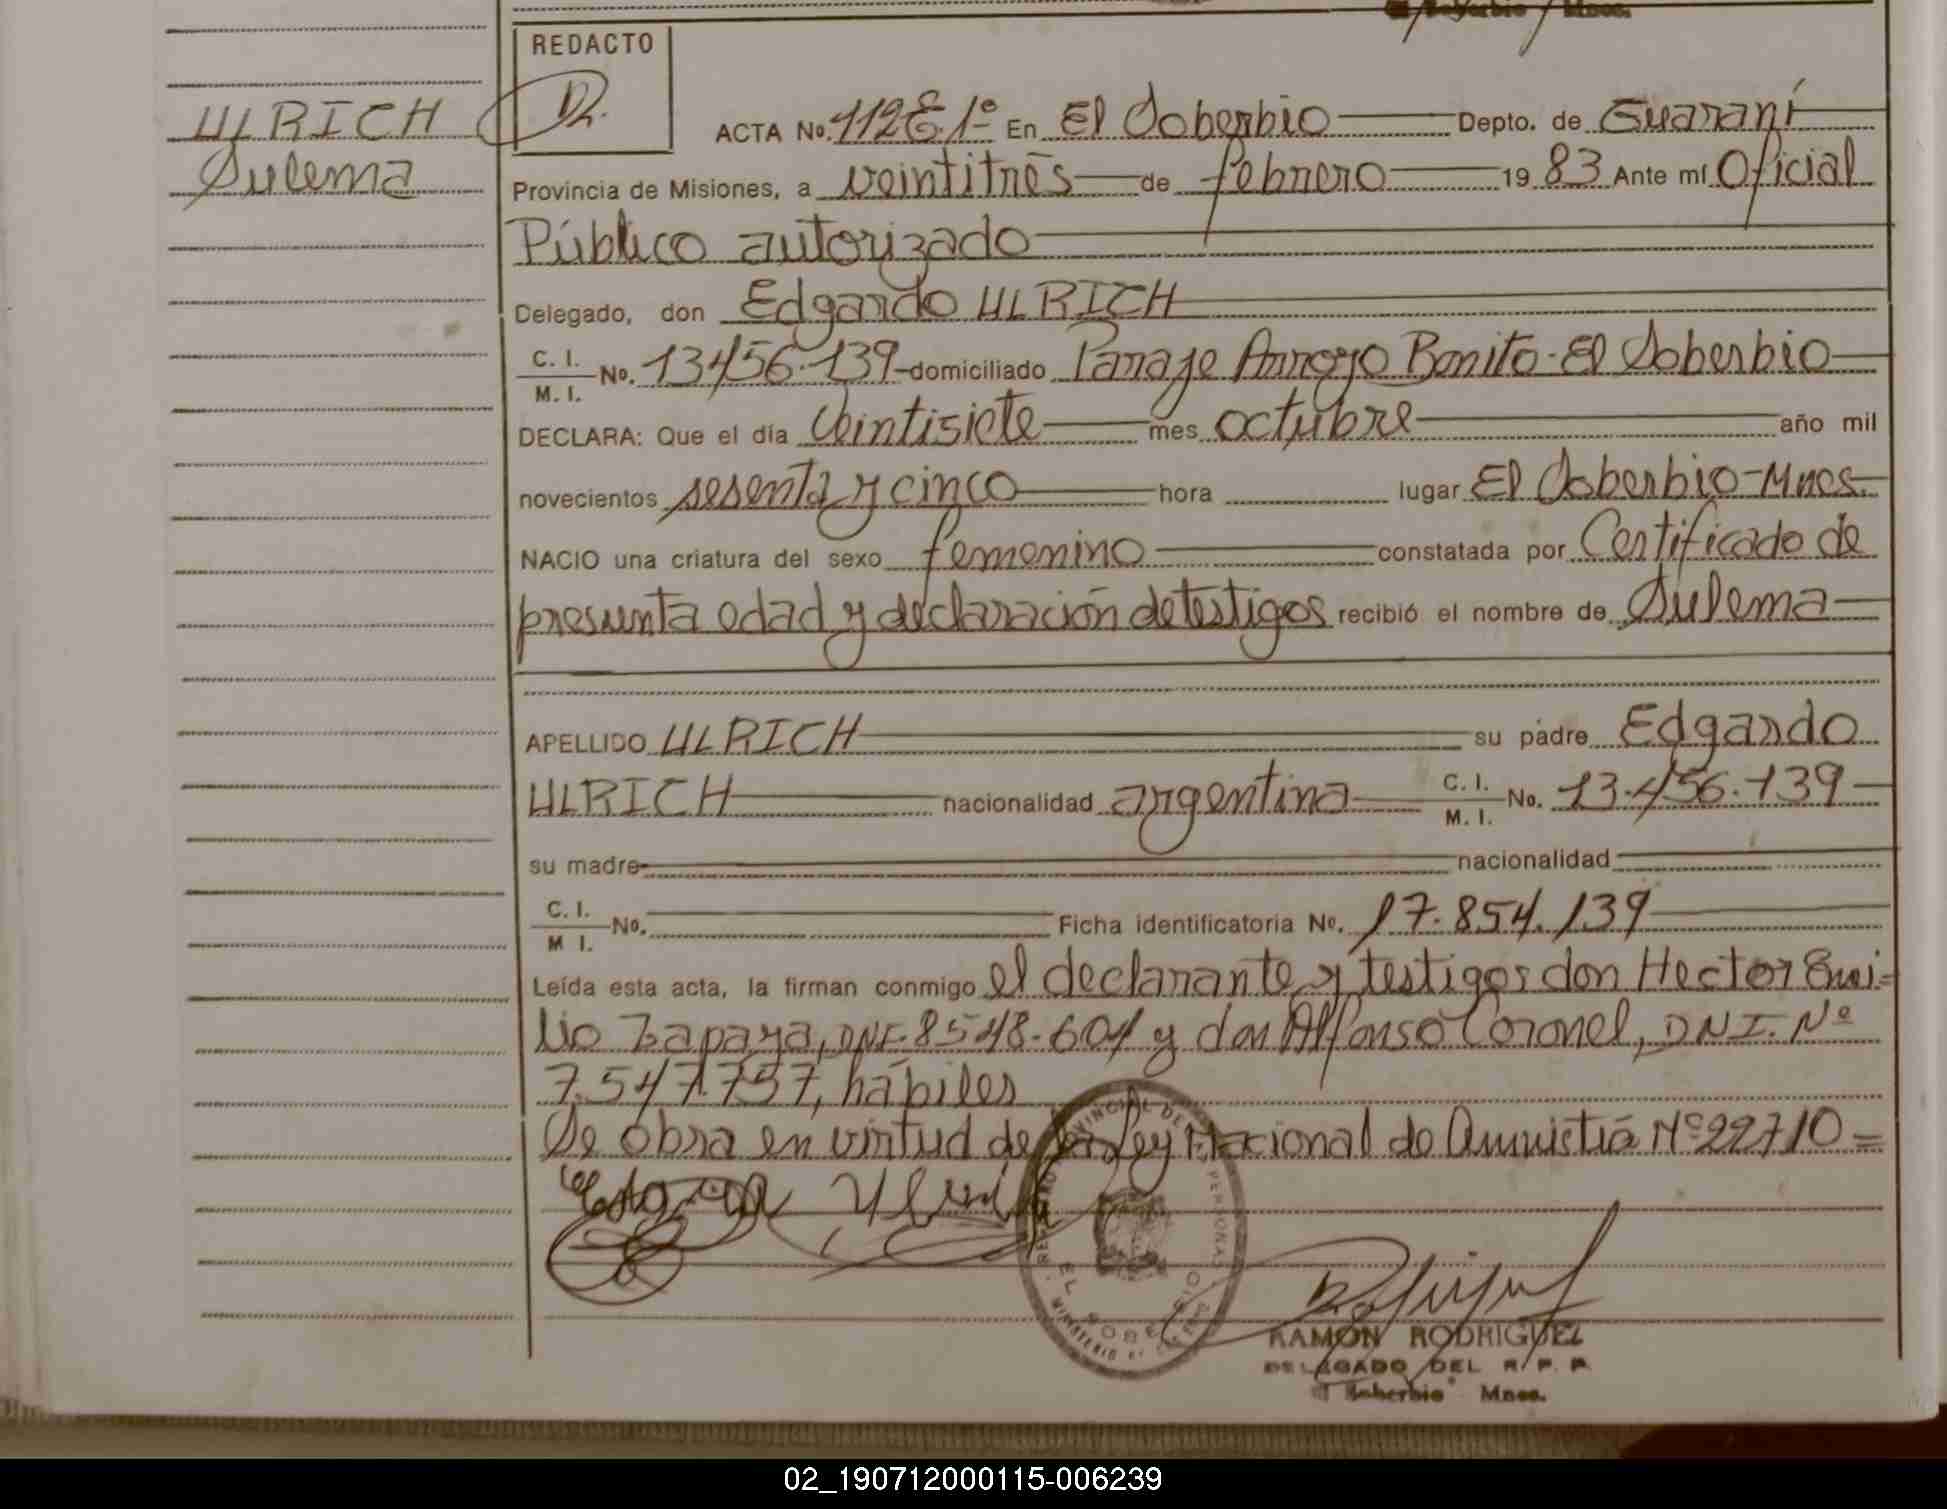 El Soberbio / Mnes.
REDACTO
ULRICH
Sulema
ACTA No. 112 E. 1º En El Soberbio Depto. de Guaraní
Provincia de Misiones, a veintitrés de febrero 19 83 Ante mí Oficial
Público autorizado
Delegado, don Edgardo ULRICH
C. I.
M. I. No. 13.456.139 domiciliado Paraje Arroyo Bonito - El Soberbio
DECLARA: Que el día veintisiete mes octubre año mil
novecientos sesenta y cinco hora lugar El Soberbio-Mnes.
NACIO una criatura del sexo femenino constatada por Certificado de
presunta edad y declaración de testigos recibió el nombre de Sulema
APELLIDO ULRICH su padre Edgardo
ULRICH nacionalidad argentina C. I. M. I. No. 13.456.139
su madre nacionalidad
C. I. M I. No. Ficha identificatoria No. 17.854.139
Leída esta acta, la firman conmigo el declarante y testigos don Hector Emi-
lio Zapaya, DNI. 8548.604 y don Alfonso Coronel, D.N.I. Nº
7.547.757, hábiles
Se obra en virtud de la Ley Nacional de Amnistía Nº 22710 =
EL SOBERBIO
RAMON RODRIGUEZ
DELEGADO DEL R. P. P.
El Soberbio Mnes.
02_190712000115-006239